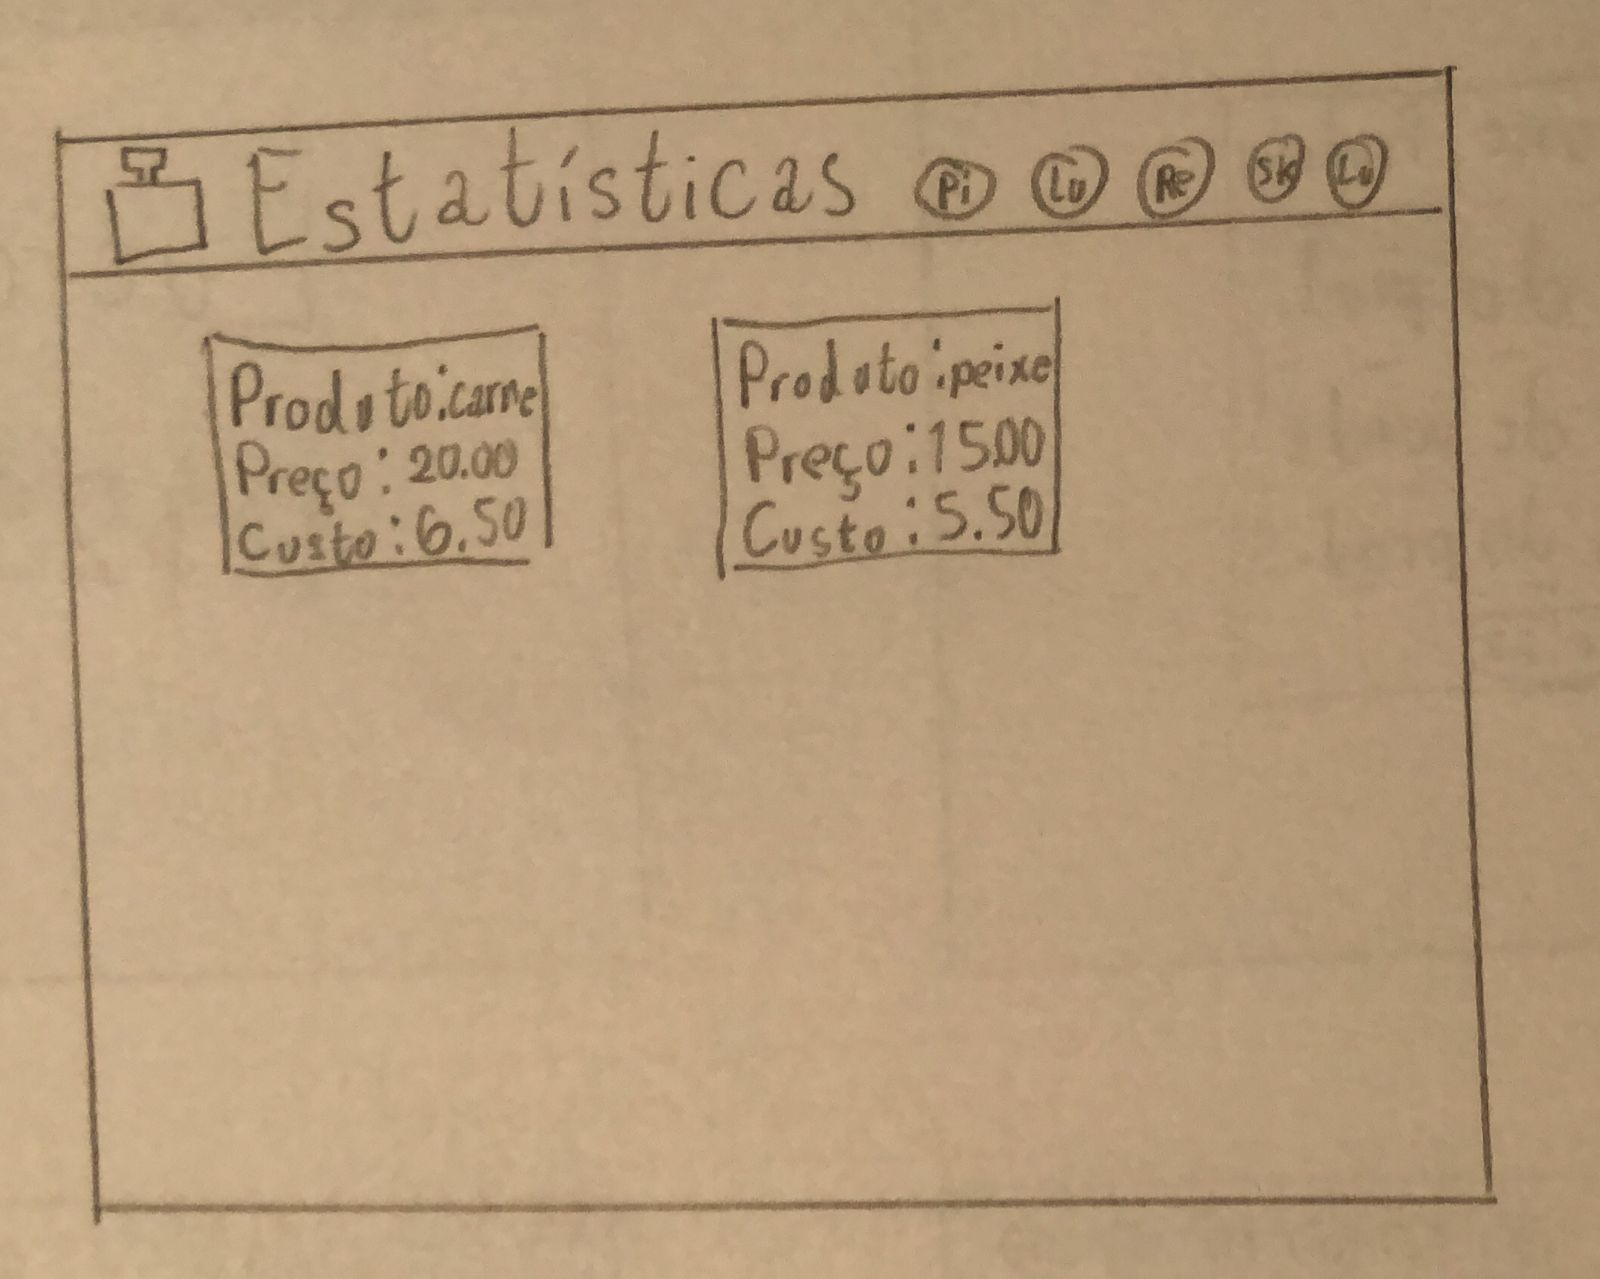 Estatísticas Pi Lu Re Sk Lu
Produto:carne
Preço:20.00
Custo:6.50
Produto:peixe
Preço:15.00
Custo:5.50